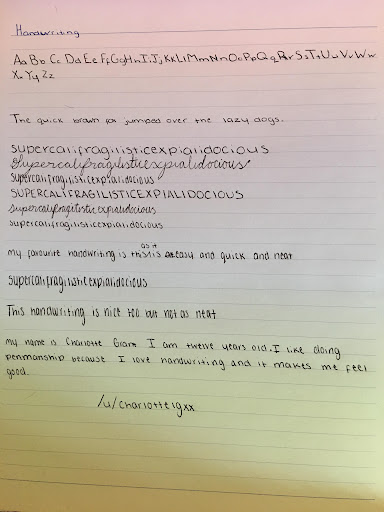 Handwriting
Aa Bb Cc Dd Ee Ff Gg Hh Ii Jj Kk Ll Mm Nn Oo Pp Qq Rr Ss Tt Uu Vv Ww
Xx Yy Zz
The quick brown fox jumped over the lazy dogs.
supercalifragilisticexpialidocious
Supercalifragilisticexpialidocious
supercalifragilisticexpialidocious
SUPERCALIFRAGILISTICEXPIALIDOCIOUS
supercalifragilisticexpialidocious
supercalifragilisticexpialidocious
as it
my favourite handwriting is this is easy and quick and neat
supercalifragilisticexpialidocious
This handwriting is nice too but not as neat
my name is Charlotte Grant I am twelve years old. I like doing
penmanship because I love handwriting and it makes me feel
good.
/u/charlottelgxx